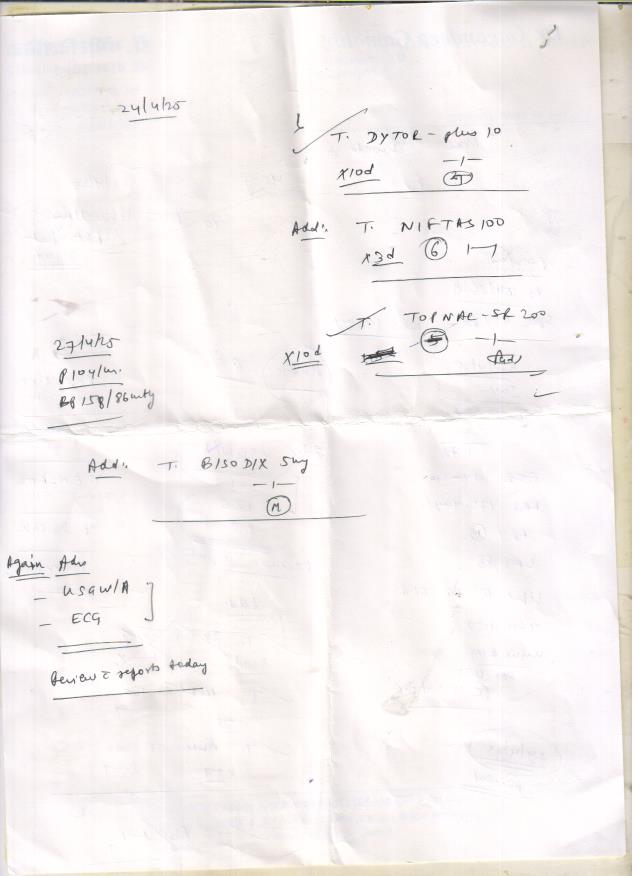 24/4/25
T. DYTOR - plus 10
—1—
x10d
Add:. T. NIFTAS 100
x3d 6 1—1
T. TOPNAC - SR 200
x10d —1—
27/4/25
P 104/m.
BP 158/86mmHg
Add:. T. BISODIX 5mg
—1—
M
Again Adv
- USG W/A
- ECG
Review c̄ reports today